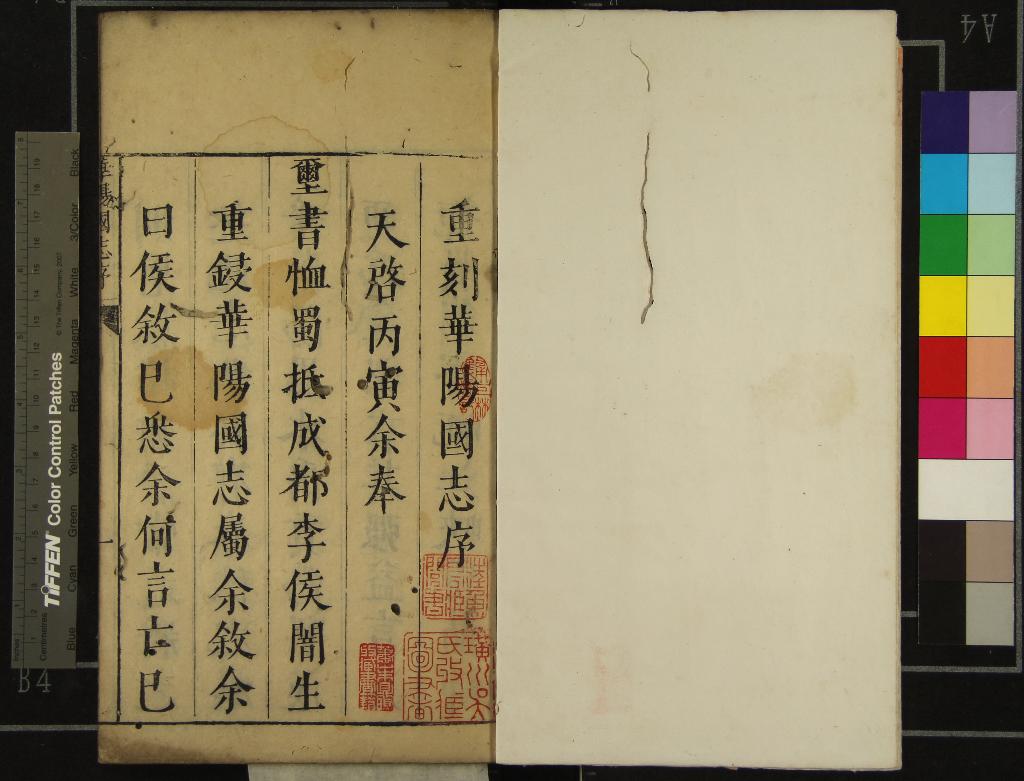 重刻華陽國志序
天啓丙寅余奉
璽書恤蜀抵成都李侯闇生
重鋟華陽國志屬余敘余
曰侯敘巳悉余何言亡巳
華陽國志序
一
TIFFEN Color Control Patches
© The Tiffen Company, 2007
Blue Cyan Green Yellow Red Magenta White 3/Color Black
Inches
Centimetres
B4
A4